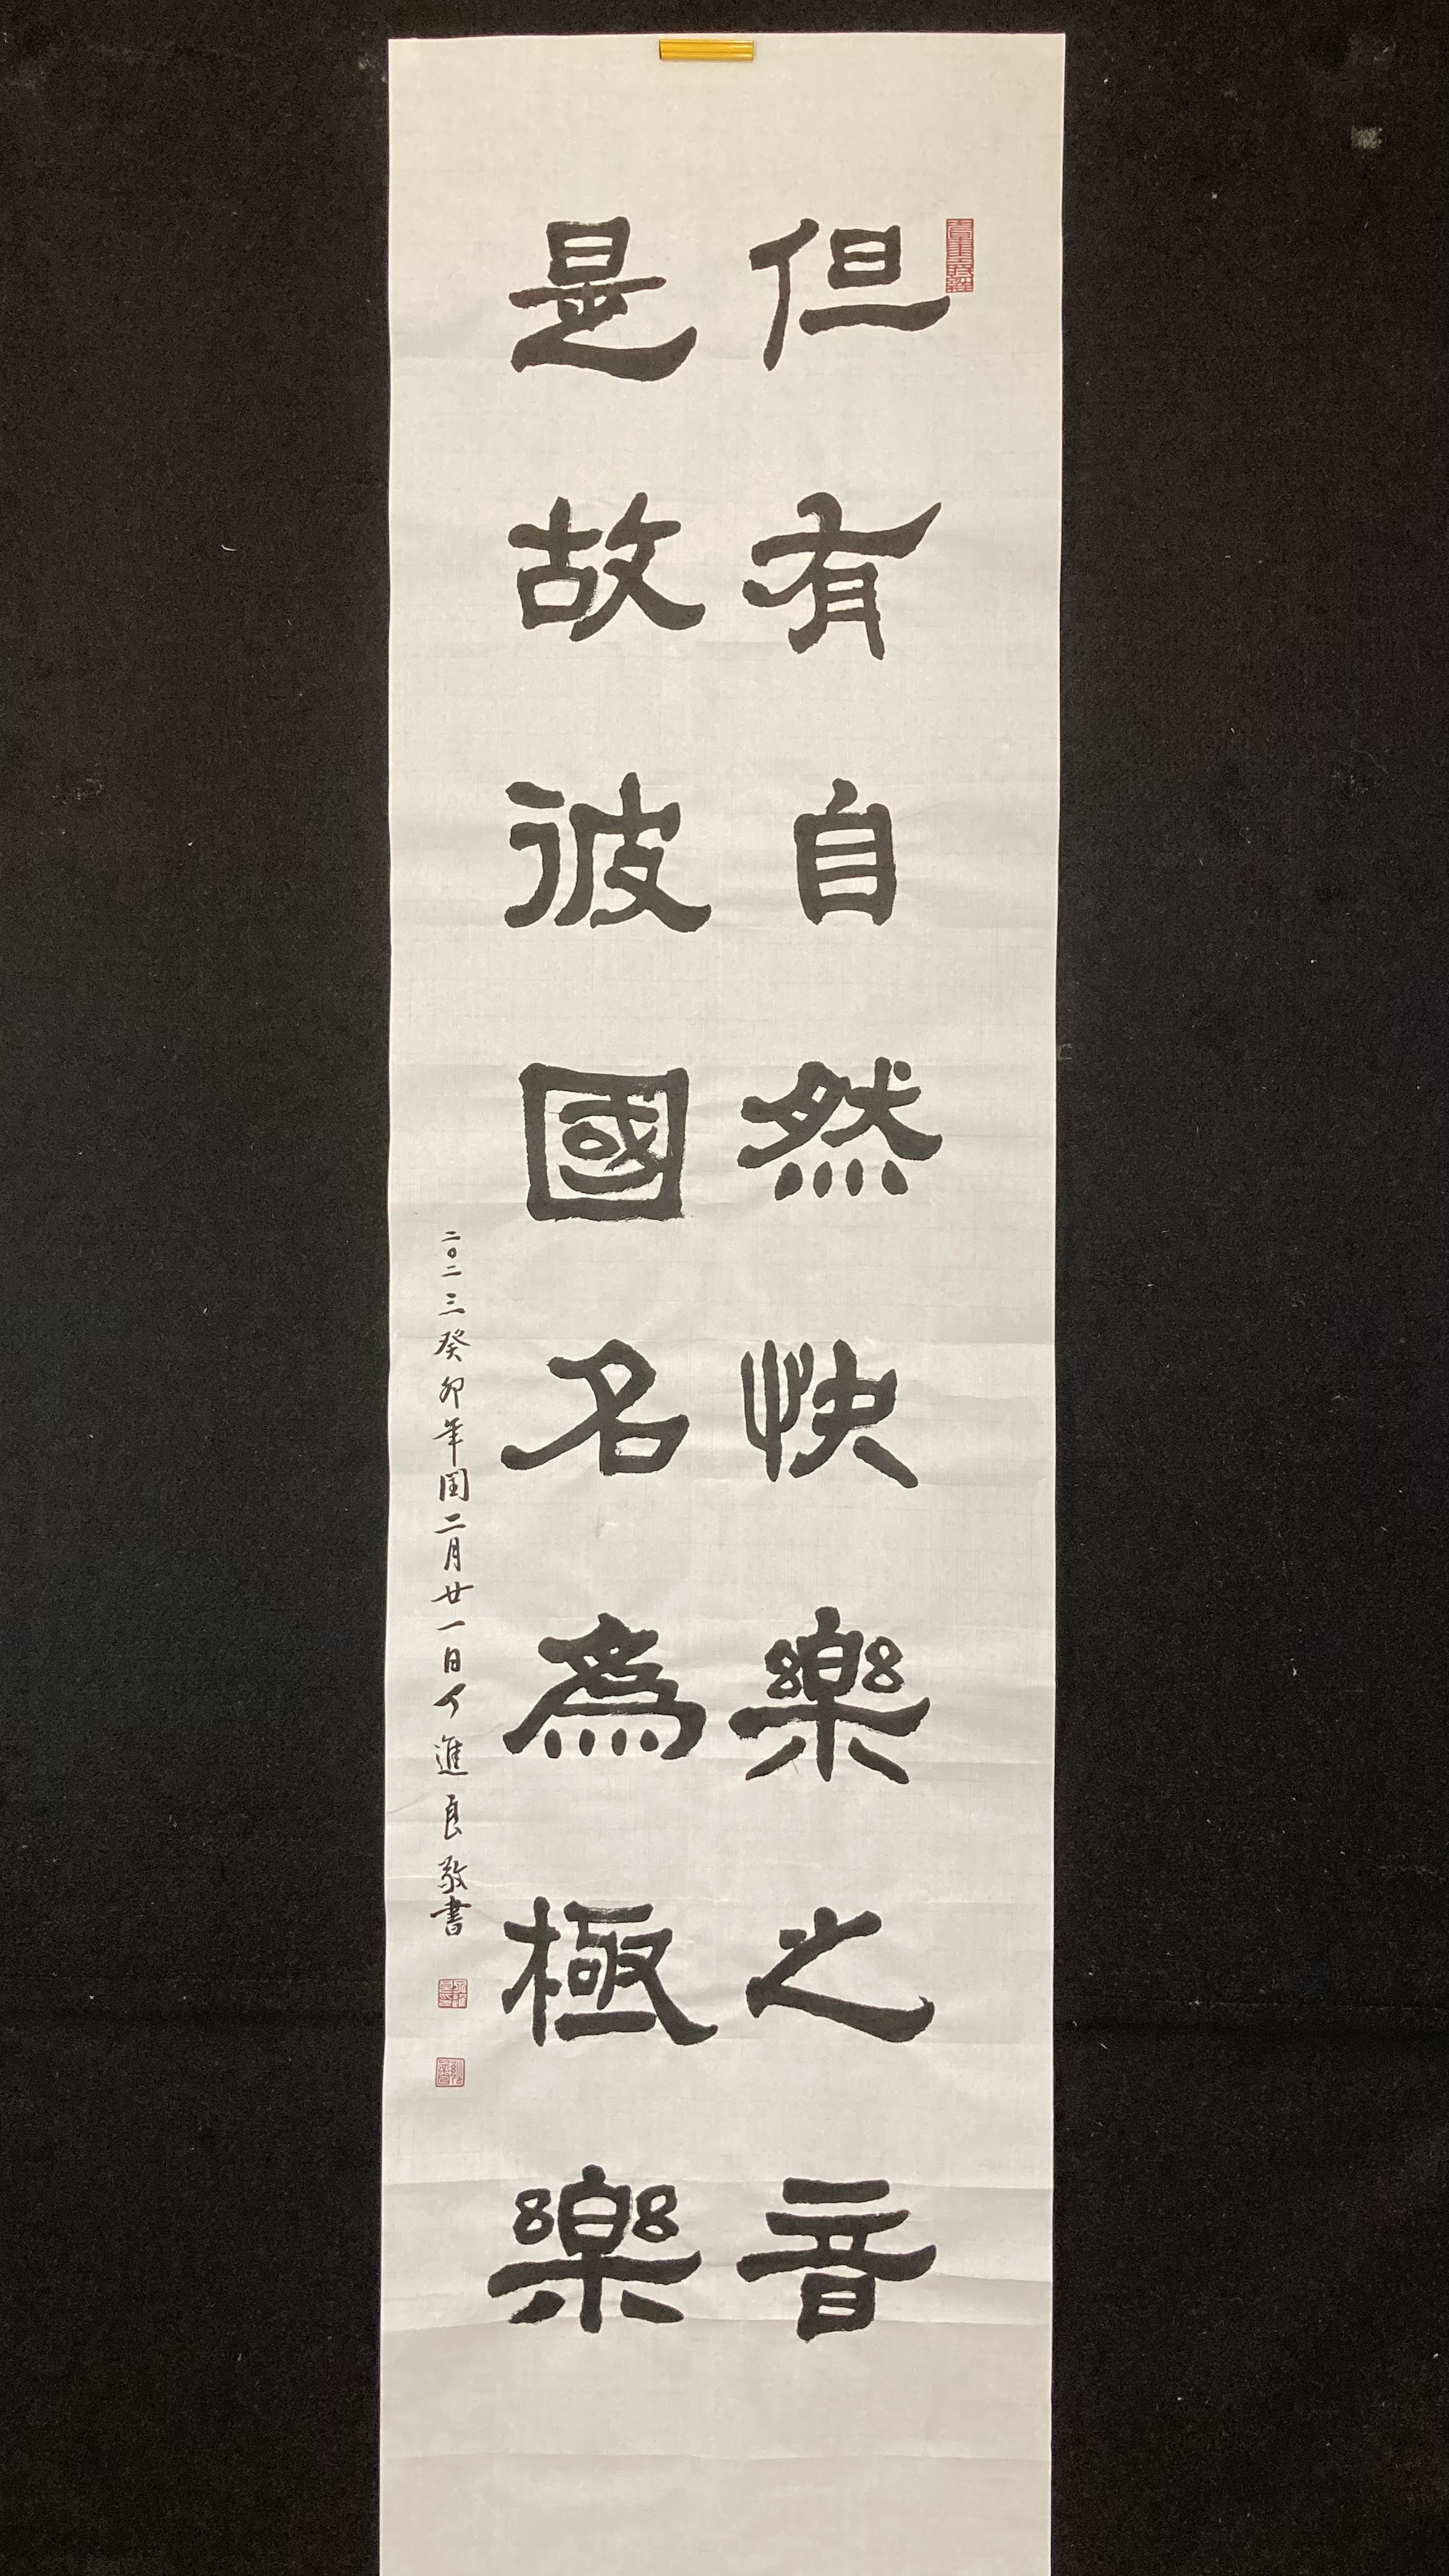 但有自然快樂之音
是故彼國名為極樂
二〇二三癸卯年閏二月廿一日丁進良敬書